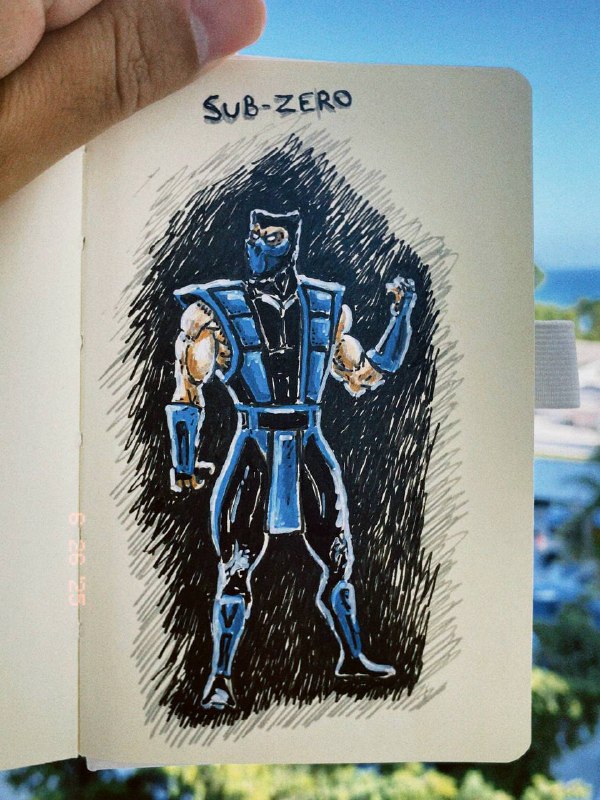 SUB-ZERO
6 26 25